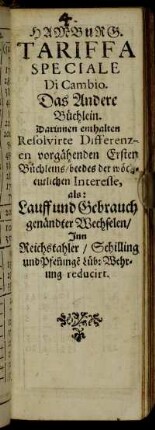 4.
HAMBURG.
TARIFFA
SPECIALE
Di Cambio.
Das Andere
Büchlein.
Darinnen enthalten
Resolvirte Differenz-
en vorgähenden Ersten
Büchleins/ beedes der wöch-
entlichen Interesse,
als:
Lauff und Gebrauch
genandter Wechselen/
Inn
Reichsthaler / Schilling
und Pfenningē Lüb: Wehr-
ung reducirt.